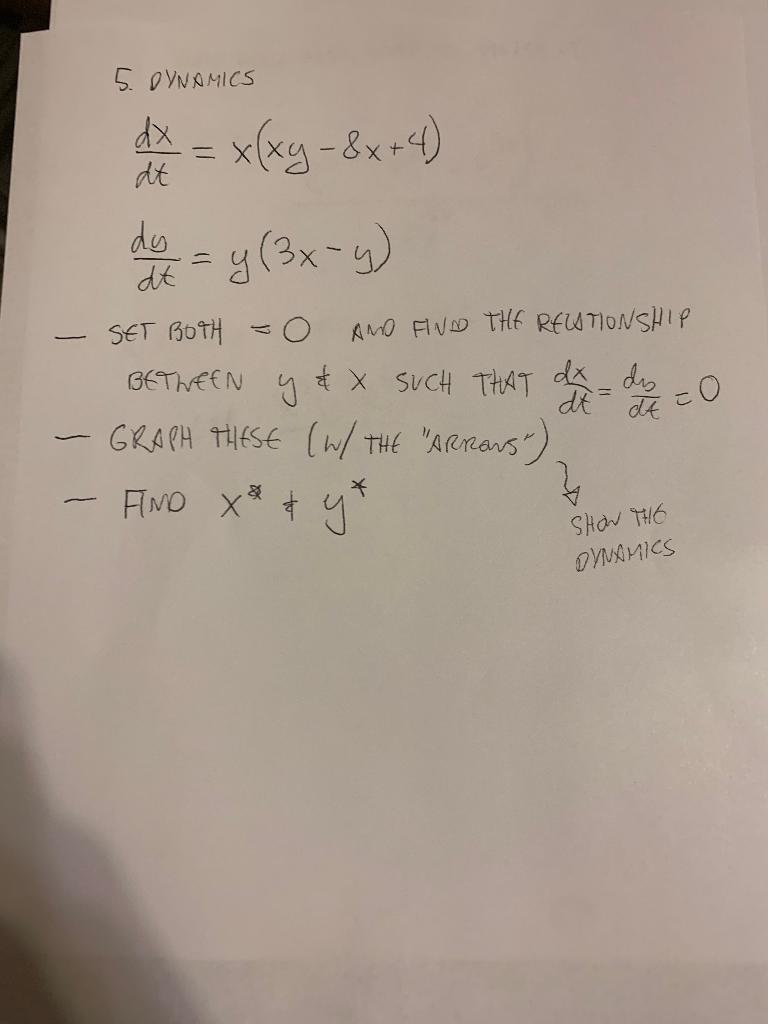 5. DYNAMICS
dx/dt = x(xy - 8x + 4)
dy/dt = y(3x - y)
— SET BOTH = 0 AND FIND THE RELATIONSHIP
BETWEEN y & x SUCH THAT dx/dt = dy/dt = 0
— GRAPH THESE (W/ THE "ARROWS")
↳ SHOW THE
DYNAMICS
— FIND x* & y*